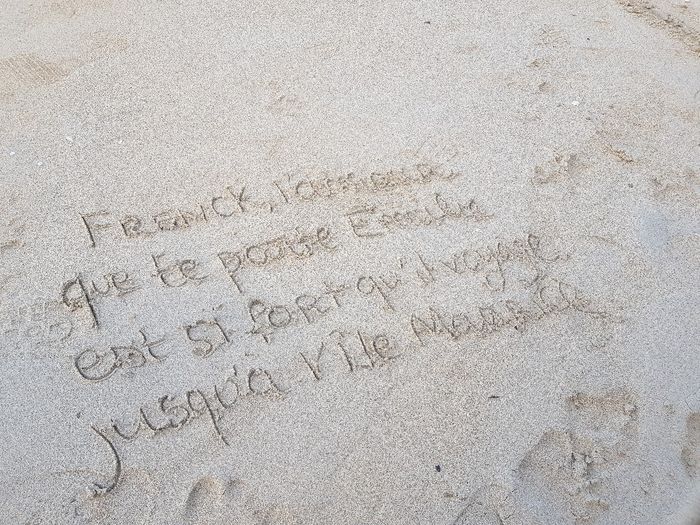 FRENCK, l'amour
que te porte Emilie
est si fort qu'il voyage
jusqu'à l'île Maurice